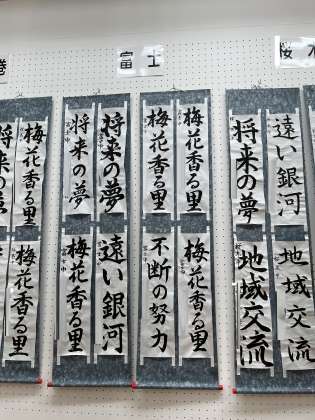 富士
桜
遠い銀河
将来の夢
地域交流
地域交流
梅花香る里
梅花香る里
梅花香る里
不断の努力
将来の夢
将来の夢
遠い銀河
梅花香る里
梅花香る里
将来の
梅花香る里